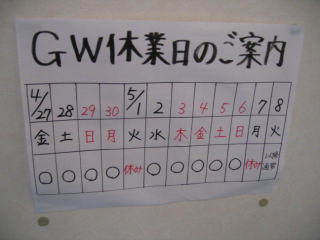 GW休業日のご案内
4/27 28 29 30 5/1 2 3 4 5 6 7 8
金 土 日 月 火 水 木 金 土 日 月 火
○ ○ ○ ○ 休み ○ ○ ○ ○ ○ 休み 以降通常